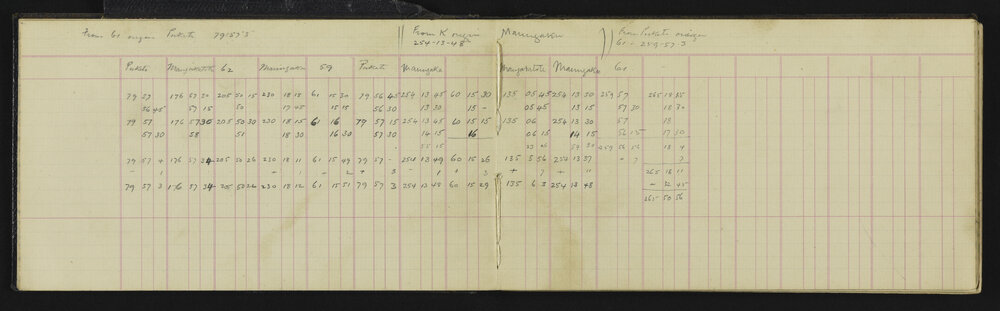 From 61 origin Pukete 79-57-3
From K origin Maungakawa
254-13-48
From Pukete origin
61 - 259-57-3
Pukete 62 59 Pukete 61
79 57 176 57 30 205 50 15 230 18 15 61 15 30 79 56 45 254 13 45 60 15 30 135 05 45 254 13 30 259 57 265 18 35
56 45 57 15 50 17 45 15 15 56 30 13 30 15 - 05 45 13 15 57 30 18 30
79 57 176 57 30 205 50 30 230 18 15 61 16 79 57 15 254 13 45 60 15 15 135 06 254 13 30 57 18
57 30 58 51 18 30 16 30 57 30 14 15 16 06 15 14 15 56 15 17 50
55 15 23 05 57 30 259 56 56 18 4
79 57 4 176 57 34 205 50 26 230 18 11 61 15 49 79 57 - 254 13 49 60 15 26 135 5 56 254 13 37 + 7 7
- 1 + 1 - 2 + 3 - 1 + 3 + 7 + 11 265 18 11
79 57 3 176 57 34 205 50 26 230 18 12 61 15 51 79 57 3 254 13 48 60 15 29 135 6 3 254 13 48 - 12 45
265 50 56